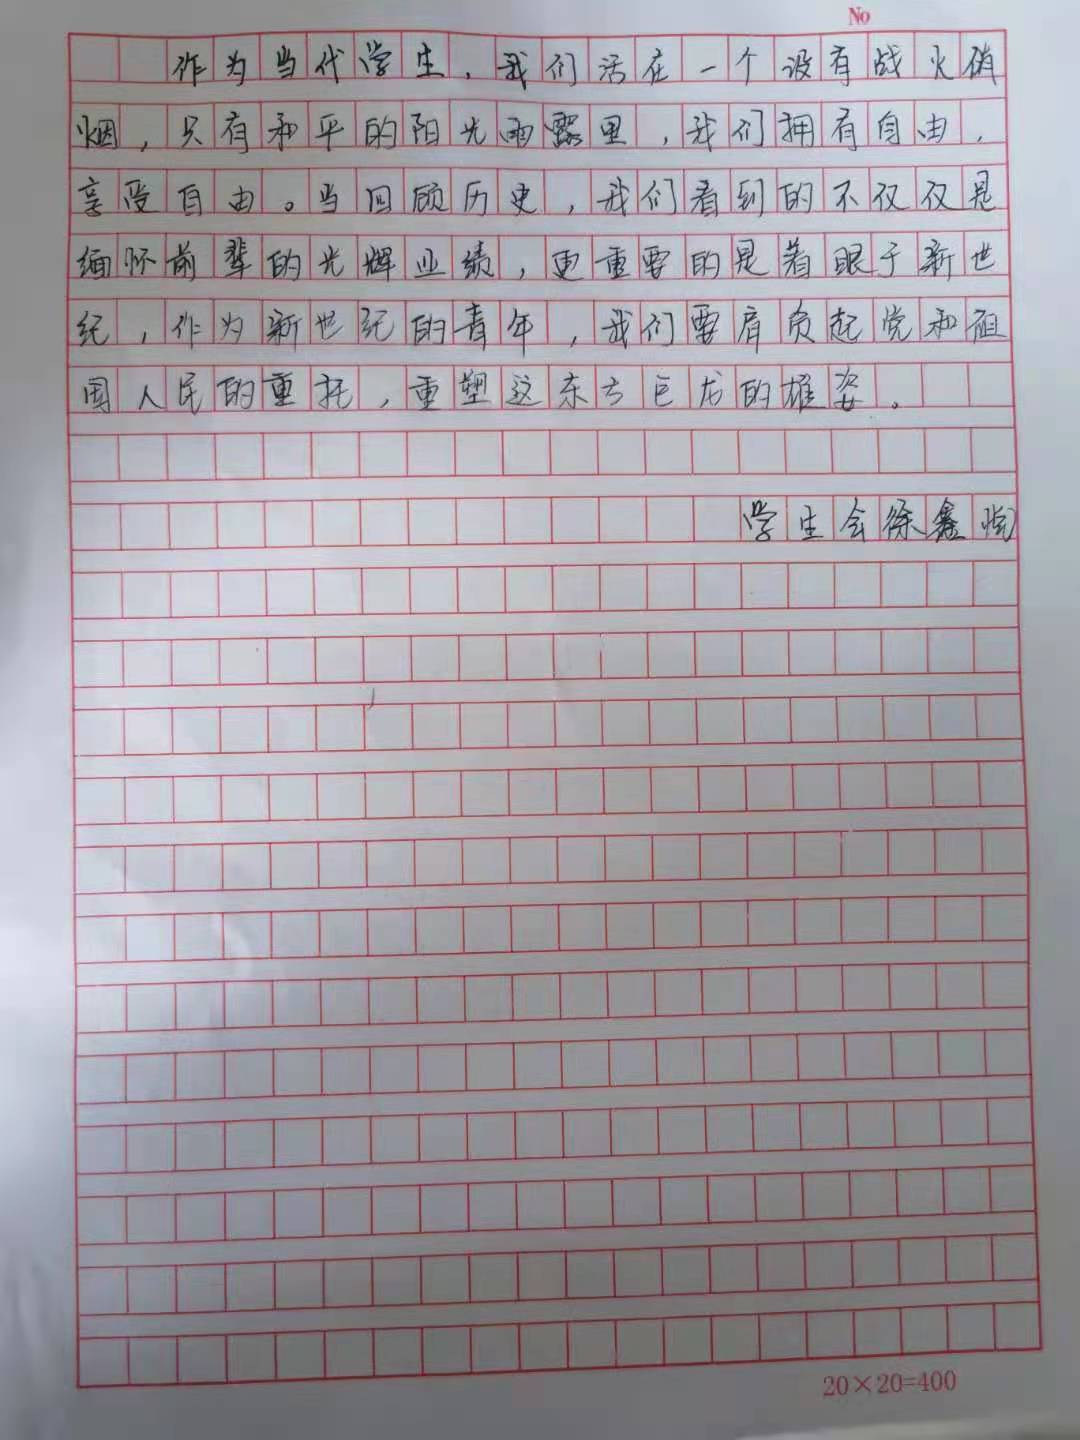 No
作为当代学生，我们活在一个没有战火硝
烟，只有和平的阳光雨露里，我们拥有自由，
享受自由。当回顾历史，我们看到的不仅仅是
缅怀前辈的光辉业绩，更重要的是着眼于新世
纪，作为新世纪的青年，我们要肩负起党和祖
国人民的重托，重塑这东方巨龙的雄姿。
学生会徐鑫悦
20×20=400